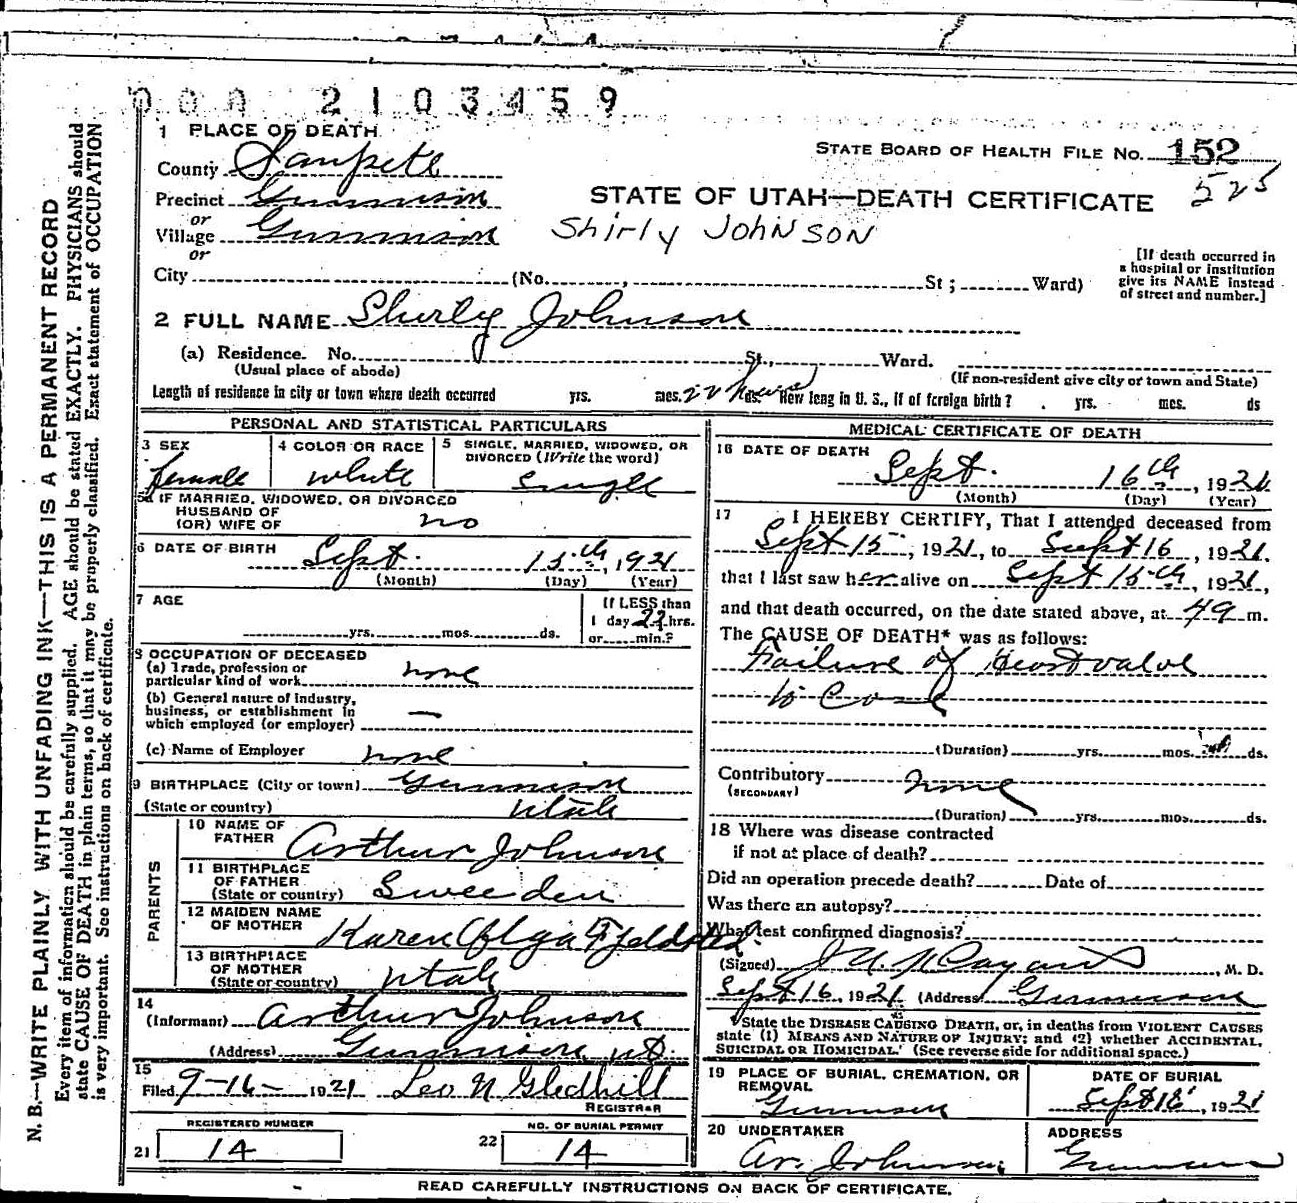 000 2103459
1 PLACE OF DEATH
STATE BOARD OF HEALTH FILE NO. 152
525
County Sanpete
Precinct Gunnison
or
Village Gunnison
or
STATE OF UTAH—DEATH CERTIFICATE
Shirly Johnson
[If death occurred in a hospital or institution give its NAME instead of street and number.]
City (No. , St ; Ward)
2 FULL NAME Shirley Johnson
(a) Residence. No. St., Ward.
(Usual place of abode)
(If non-resident give city or town and State)
Length of residence in city or town where death occurred yrs. mos. 22 hours ds. How long in U. S., if of foreign birth? yrs. mos. ds
PERSONAL AND STATISTICAL PARTICULARS
3 SEX
female
4 COLOR OR RACE
white
5 SINGLE, MARRIED, WIDOWED, OR DIVORCED (Write the word)
Single
5a IF MARRIED, WIDOWED, OR DIVORCED
HUSBAND OF
(OR) WIFE OF no
6 DATE OF BIRTH Sept. 15th, 1921
(Month) (Day) (Year)
7 AGE
yrs. mos. ds.
If LESS than
1 day 22 hrs.
or min.?
8 OCCUPATION OF DECEASED
(a) Trade, profession or
particular kind of work none
(b) General nature of industry,
business, or establishment in
which employed (or employer) —
(c) Name of Employer none
9 BIRTHPLACE (City or town) Gunnison
(State or country) Utah
PARENTS
10 NAME OF
FATHER Arthur Johnson
11 BIRTHPLACE
OF FATHER
(State or country) Sweeden
12 MAIDEN NAME
OF MOTHER Karen Olga Fjeldsted
13 BIRTHPLACE
OF MOTHER
(State or country) Utah
14
(Informant) Arthur Johnson
(Address) Gunnison Ut
15
Filed 9-16- 1921 Leo N Gledhill
REGISTRAR
REGISTERED NUMBER
21 14
NO. OF BURIAL PERMIT
22 14
MEDICAL CERTIFICATE OF DEATH
16 DATE OF DEATH
Sept. 16th, 1921
(Month) (Day) (Year)
17 I HEREBY CERTIFY, That I attended deceased from
Sept 15, 1921, to Sept 16, 1921.
that I last saw her alive on Sept 15th, 1921,
and that death occurred, on the date stated above, at m.
The CAUSE OF DEATH* was as follows:
Failure of Heart valve
to Close
(Duration) yrs. mos. ds.
Contributory none
(SECONDARY)
(Duration) yrs. mos. ds.
18 Where was disease contracted
if not at place of death?
Did an operation precede death? Date of
Was there an autopsy?
What test confirmed diagnosis?
(Signed) , M. D.
Sept 16, 1921. (Address) Gunnison
*State the DISEASE CAUSING DEATH, or, in deaths from VIOLENT CAUSES
state (1) MEANS AND NATURE OF INJURY; and (2) whether ACCIDENTAL,
SUICIDAL OR HOMICIDAL. (See reverse side for additional space.)
19 PLACE OF BURIAL, CREMATION, OR
REMOVAL
Gunnison
DATE OF BURIAL
Sept 16, 1921
20 UNDERTAKER
Ar. Johnson
ADDRESS
Gunnison
READ CAREFULLY INSTRUCTIONS ON BACK OF CERTIFICATE.
N. B.—WRITE PLAINLY WITH UNFADING INK—THIS IS A PERMANENT RECORD
Every item of information should be carefully supplied. AGE should be stated EXACTLY. PHYSICIANS should
state CAUSE OF DEATH in plain terms, so that it may be properly classified. Exact statement of OCCUPATION
is very important. See instructions on back of certificate.